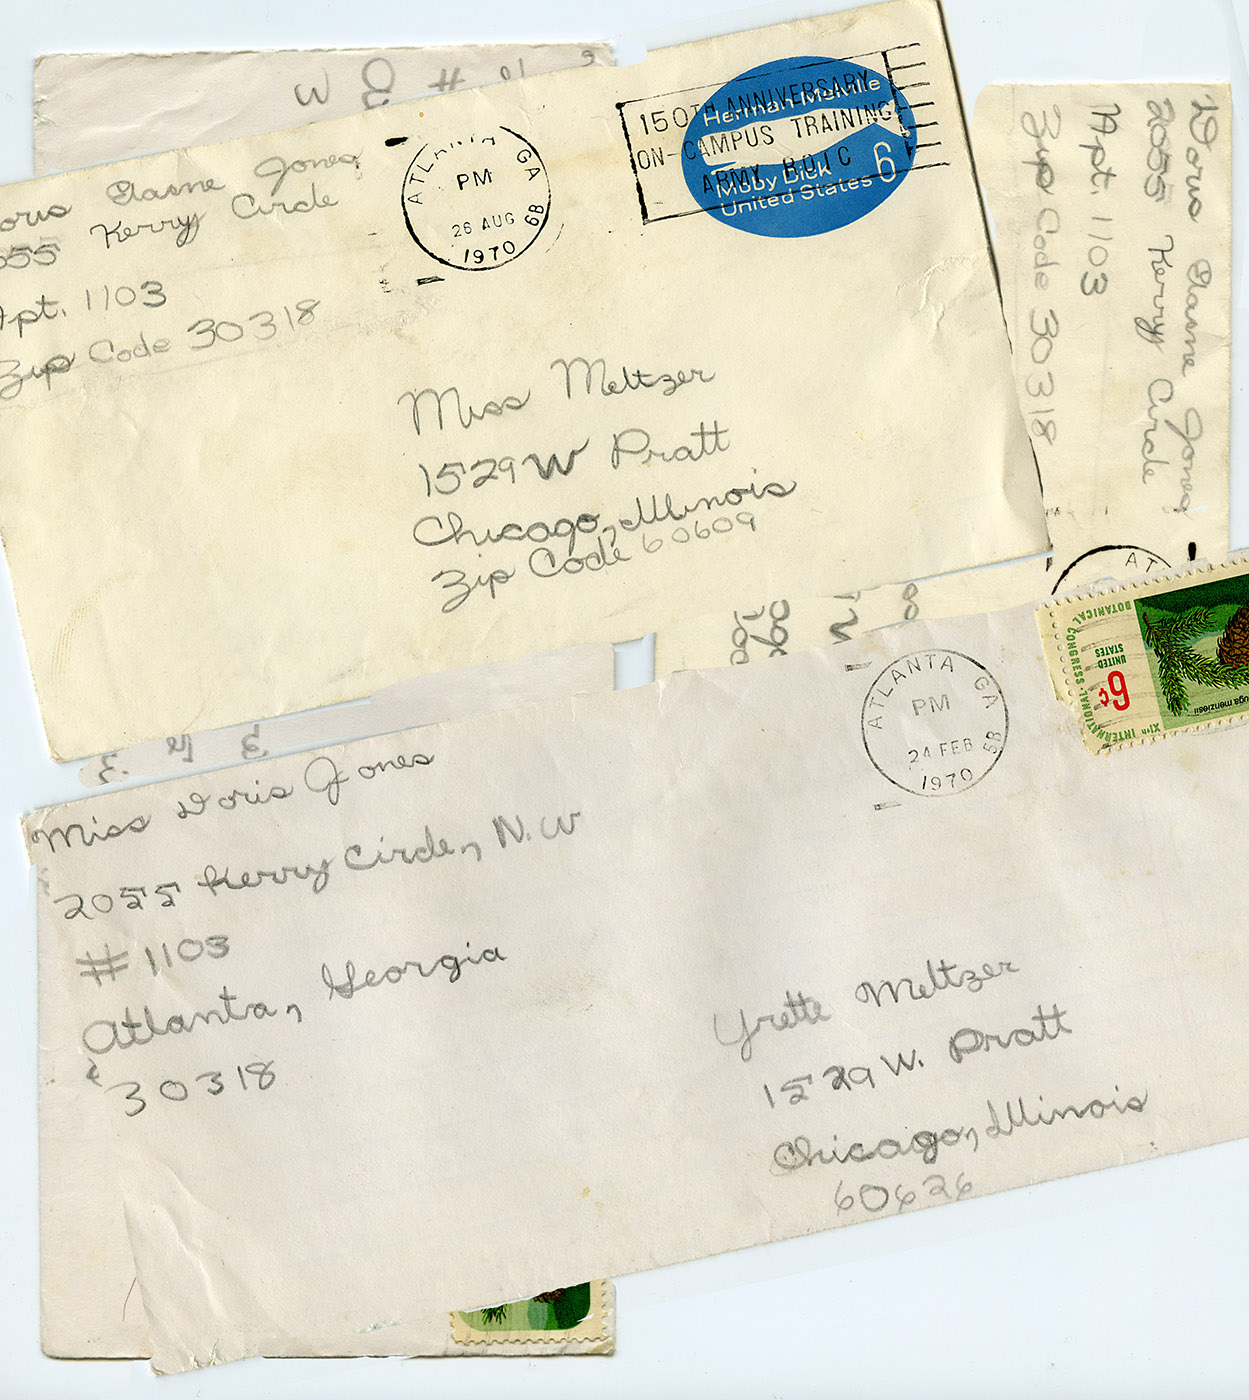 Doris Elaine Jones
2055 Kerry Circle
Apt. 1103
Zip Code 30318
ATLANTA GA
PM
26 AUG 6B
1970
150TH ANNIVERSARY
ON-CAMPUS TRAINING
ARMY ROTC
Herman Melville
Moby Dick 6
United States
Miss Meltzer
1529 W Pratt
Chicago, Illinois
Zip Code 60609
Doris Elaine Jones
2055 Kerry Circle
Apt. 1103
Zip Code 30318
AT
Miss Doris Jones
2055 Kerry Circle, N.W
#1103
Atlanta, Georgia
30318
ATLANTA GA
PM
24 FEB 5B
1970
XIth INTERNATIONAL BOTANICAL CONGRESS
UNITED
STATES
6¢
uga menziesii
Yvette Meltzer
1529 W. Pratt
Chicago, Illinois
60626